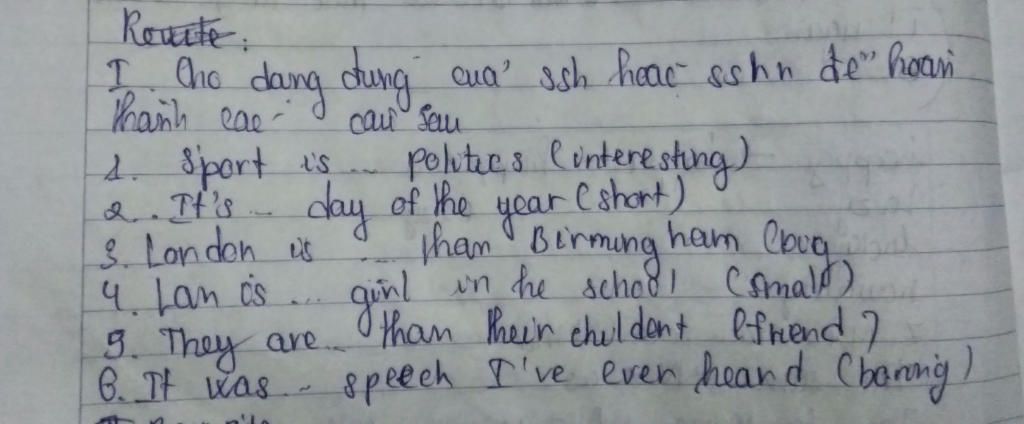 Rewrite:
I. Cho dang đung cua' ssh hoac sshn để hoan
thành cac cau sau
1. Sport is ... politics (interesting)
2. It's ... day of the year (short)
3. London is ... than Birmingham (big
4. Lan is ... girl in the school (small)
5. They are ... than their childent (friend)
6. It was ... speech I've ever heard (boring)